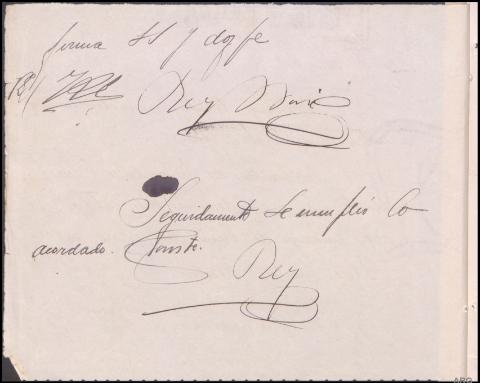 firma SS y doy fe
Rey
Seguidamente se cumplió lo
acordado. Conste.
Rey